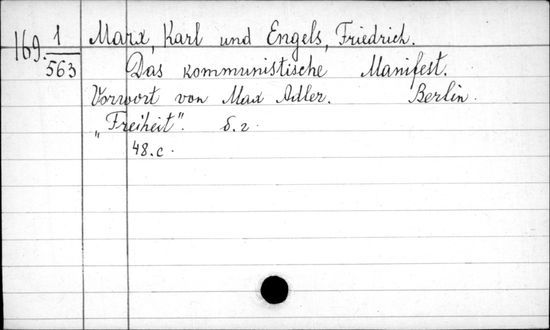 169. 1/563 Marx, Karl und Engels, Friedrich.
Das kommunistische Manifest.
Vorwort von Max Adler. Berlin.
„Freiheit". б.г.
48.с.